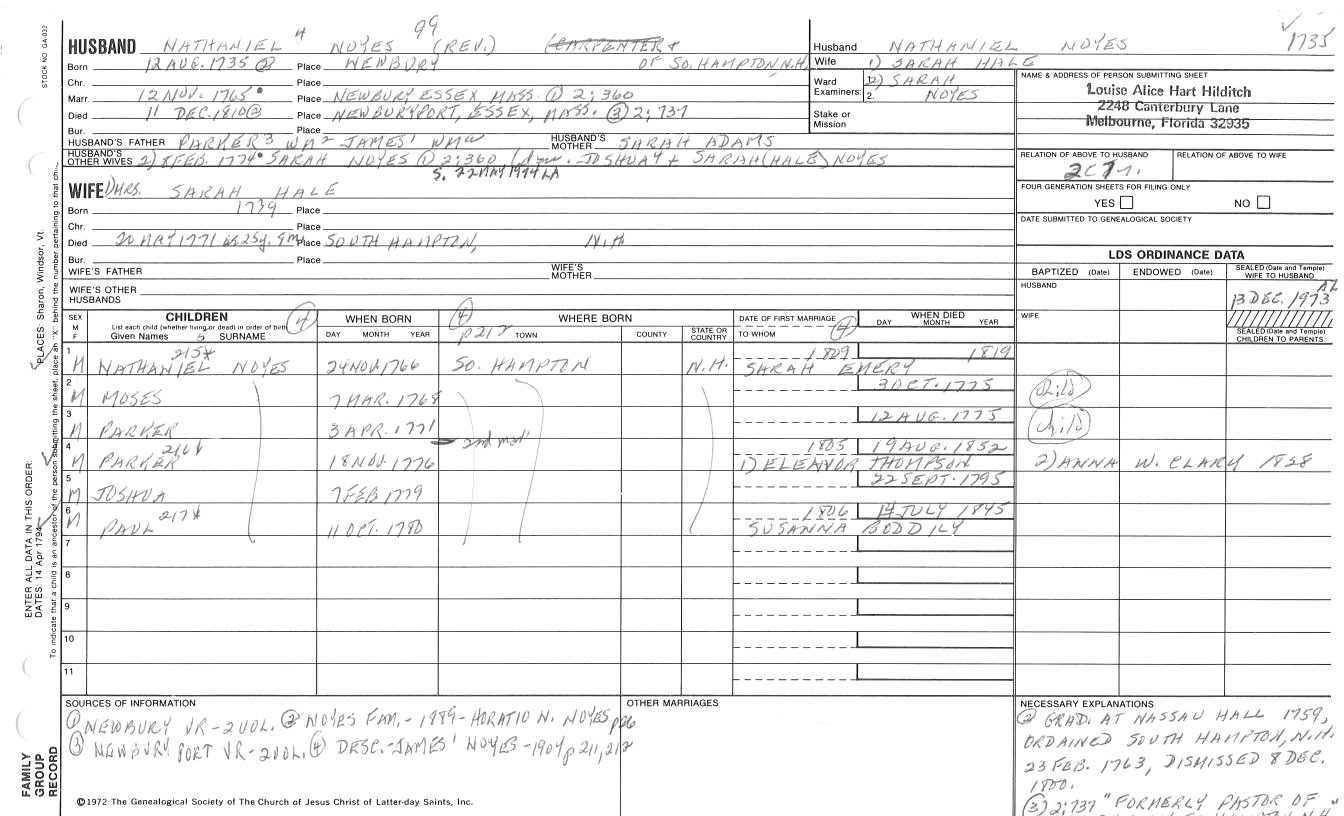 STOCK NO. GA-032
99
✓ 1735
HUSBAND NATHANIEL 4 NOYES (REV.) (CARPENTER &
Born 12 AUG. 1735 ② Place NEWBURY OF SO. HAMPTON, N.H.
Chr. Place
Marr. 12 NOV. 1765 Place NEWBURY ESSEX MASS. ① 2; 360
Died 11 DEC. 1810 ③ Place NEWBURYPORT, ESSEX, MASS. ③ 2; 737
Bur. Place
HUSBAND'S FATHER PARKER3 WM2 JAMES1 WMW HUSBAND'S MOTHER SARAH ADAMS
HUSBAND'S OTHER WIVES 2) 8 FEB. 1774 SARAH NOYES ① 2; 360 JOSHUA4 & SARAH (HALE) NOYES
S. 22 MAY 1974 LA
Husband NATHANIEL NOYES
Wife 1) SARAH HALE
Ward Examiners: 1. 2) SARAH
2. NOYES
Stake or Mission
NAME & ADDRESS OF PERSON SUBMITTING SHEET
Louise Alice Hart Hilditch
2248 Canterbury Lane
Melbourne, Florida 32935
RELATION OF ABOVE TO HUSBAND RELATION OF ABOVE TO WIFE
2C7r.
FOUR GENERATION SHEETS FOR FILING ONLY
YES NO
DATE SUBMITTED TO GENEALOGICAL SOCIETY
WIFE 1) MRS. SARAH HALE
Born 1739 Place
Chr. Place
Died 20 MAY 1771 Place SOUTH HAMPTON, N.H
Bur. Place
WIFE'S FATHER WIFE'S MOTHER
WIFE'S OTHER HUSBANDS
LDS ORDINANCE DATA
BAPTIZED (Date) ENDOWED (Date) SEALED (Date and Temple) WIFE TO HUSBAND
HUSBAND 13 DEC. 1973 AL
WIFE
SEALED (Date and Temple) CHILDREN TO PARENTS
SEX M F CHILDREN List each child (whether living or dead) in order of birth Given Names 5 SURNAME ④ WHEN BORN DAY MONTH YEAR ④ p212 WHERE BORN TOWN COUNTY STATE OR COUNTRY DATE OF FIRST MARRIAGE TO WHOM ④ WHEN DIED DAY MONTH YEAR
1 M NATHANIEL 215* NOYES 24 NOV. 1766 SO. HAMPTON N.H. 1809 SARAH EMERY 1819
2 M MOSES 7 MAR. 1768 3 OCT. 1775 child
3 M PARKER 3 APR. 1771 12 AUG. 1775 child
2nd mar.
4 M PARKER 216* 18 NOV. 1776 1805 1) ELEANOR THOMPSON 19 AUG. 1852 2) ANNA W. CLARY 1828
5 M JOSHUA 7 FEB 1779 22 SEPT. 1795
6 M PAUL 217* 11 OCT. 1780 1806 SUSANNA BODDILY 14 JULY 1845
7
8
9
10
11
PLACES: Sharon, Windsor, Vt.
ENTER ALL DATA IN THIS ORDER:
DATES: 14 Apr 1794
To indicate that a child is an ancestor of the person submitting the sheet, place an "X" behind the number pertaining to that ch
FAMILY GROUP RECORD
SOURCES OF INFORMATION
① NEWBURY VR-2VOL. ② NOYES FAM.-1889-HORATIO N. NOYES p26
③ NEWBURY PORT VR-2VOL. ④ DESC.-JAMES' NOYES-1904 p 211, 212
OTHER MARRIAGES
NECESSARY EXPLANATIONS
② GRAD. AT NASSAU HALL 1759,
ORDAINED SOUTH HAMPTON, N.H.
23 FEB. 1763, DISMISSED 8 DEC.
1800.
③ 2; 737 "FORMERLY PASTOR OF
©1972 The Genealogical Society of The Church of Jesus Christ of Latter-day Saints, Inc.